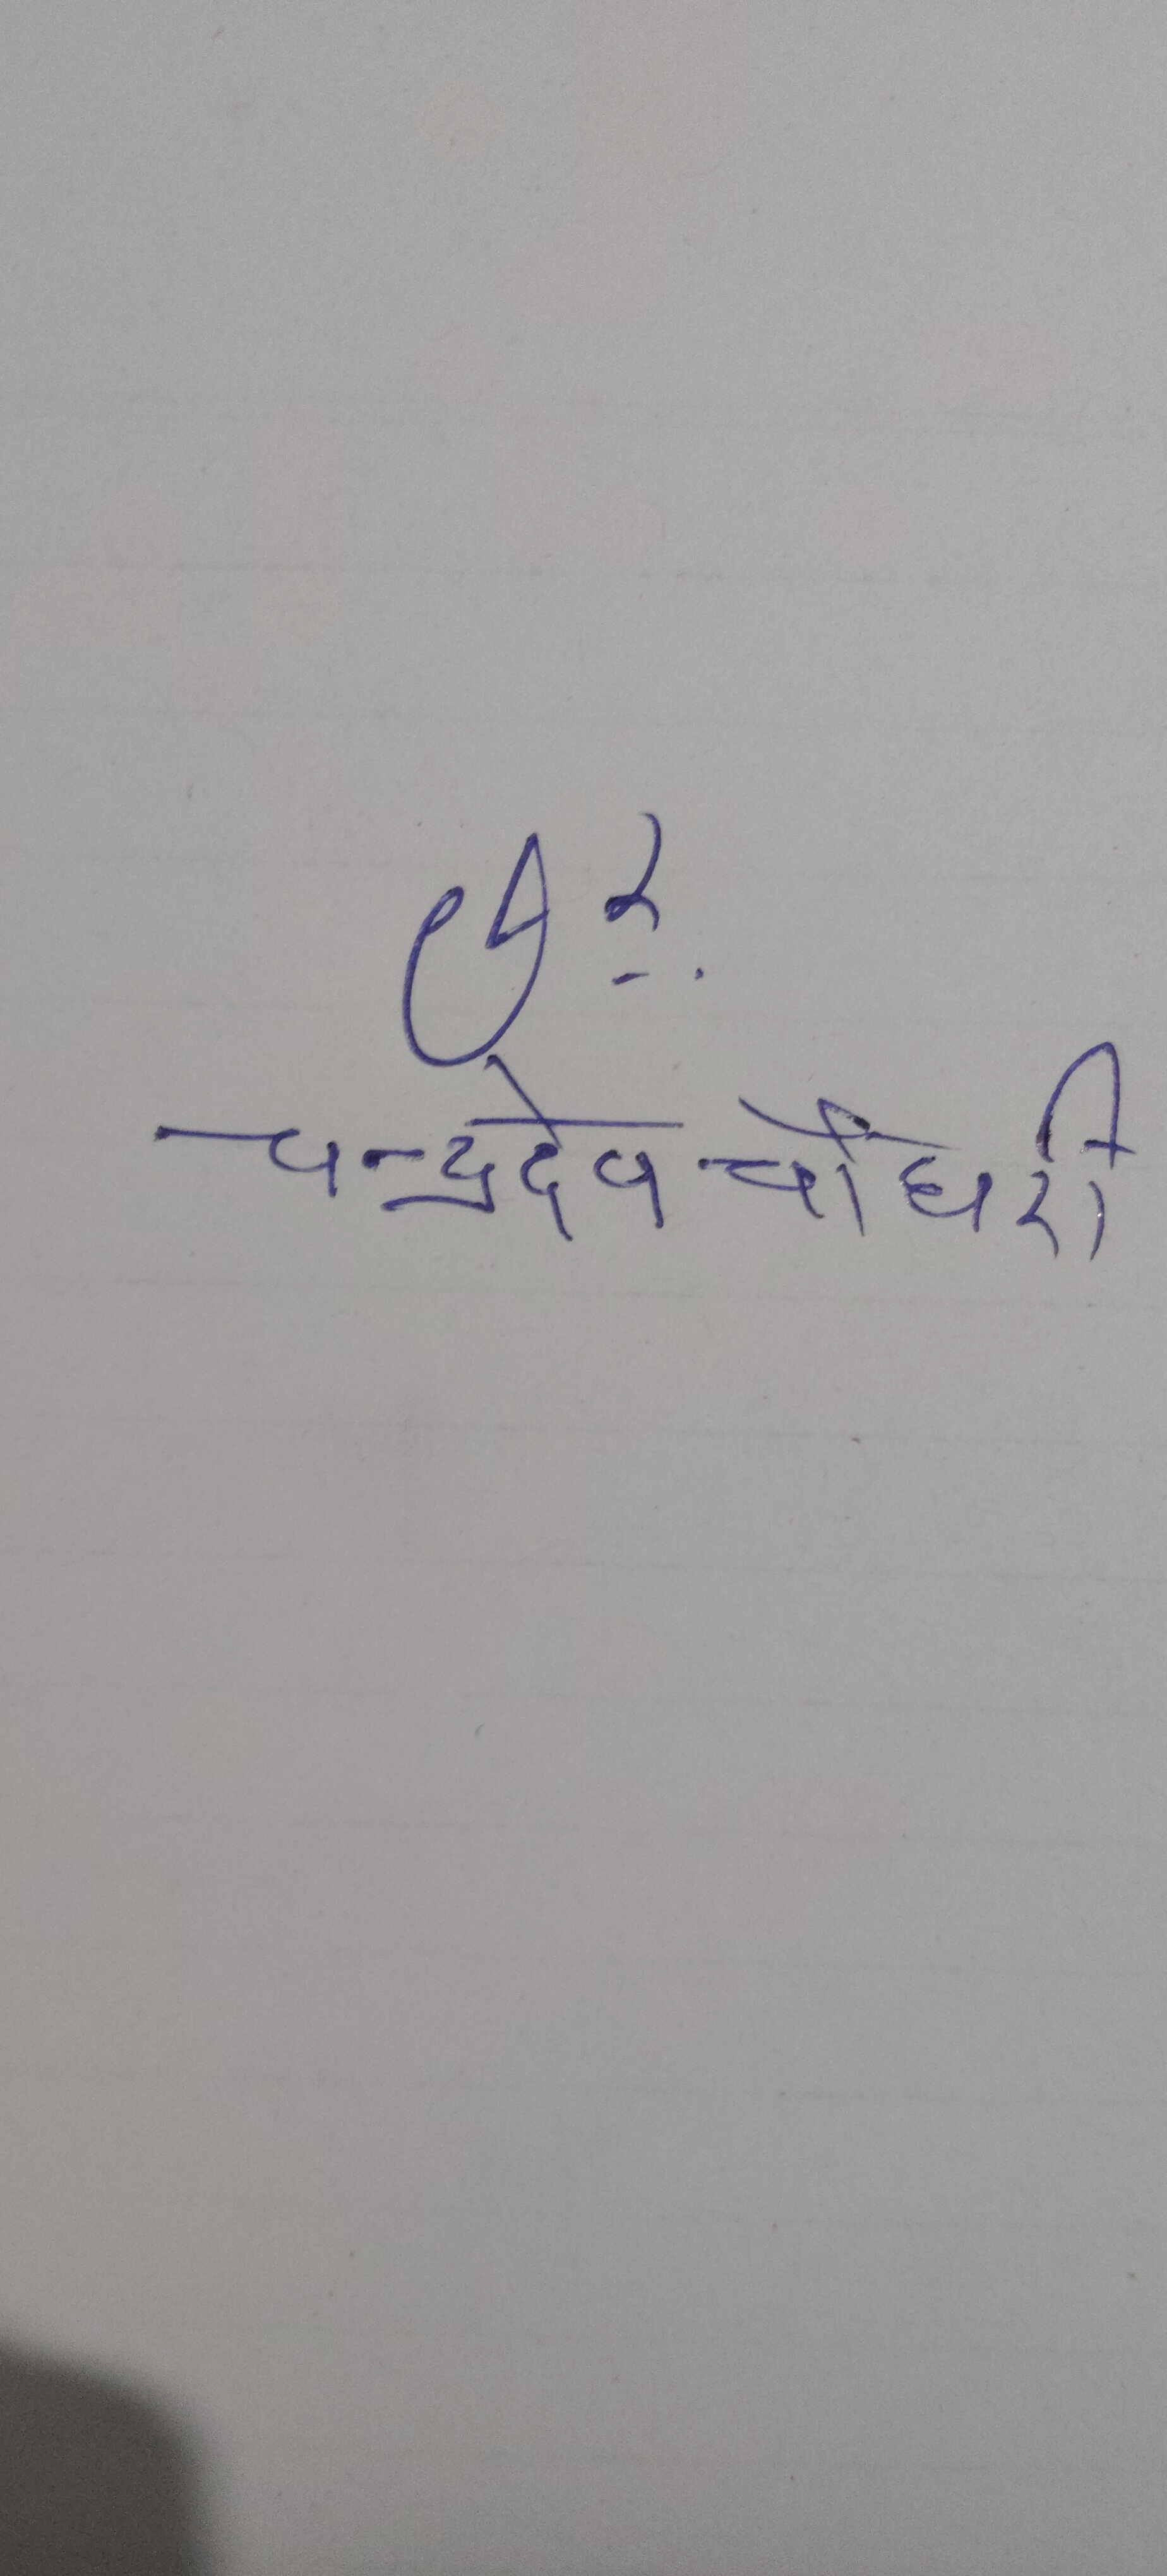 चन्द्रदेव चौधरी